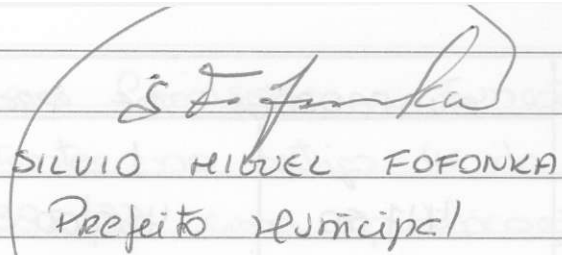 SFofonka
SILVIO MIGUEL FOFONKA
Prefeito Municipal